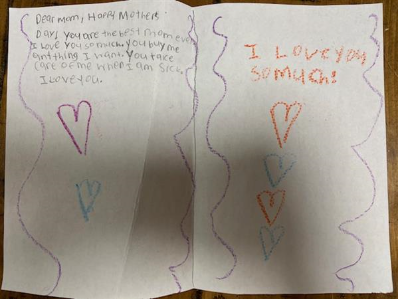 Dear Mom, Happy Mothers
Day, you are the best Mom ever
I love you so much. you buy me
anything I want. You take
care of me when I am sick.
I love you.
I Love you
so much!